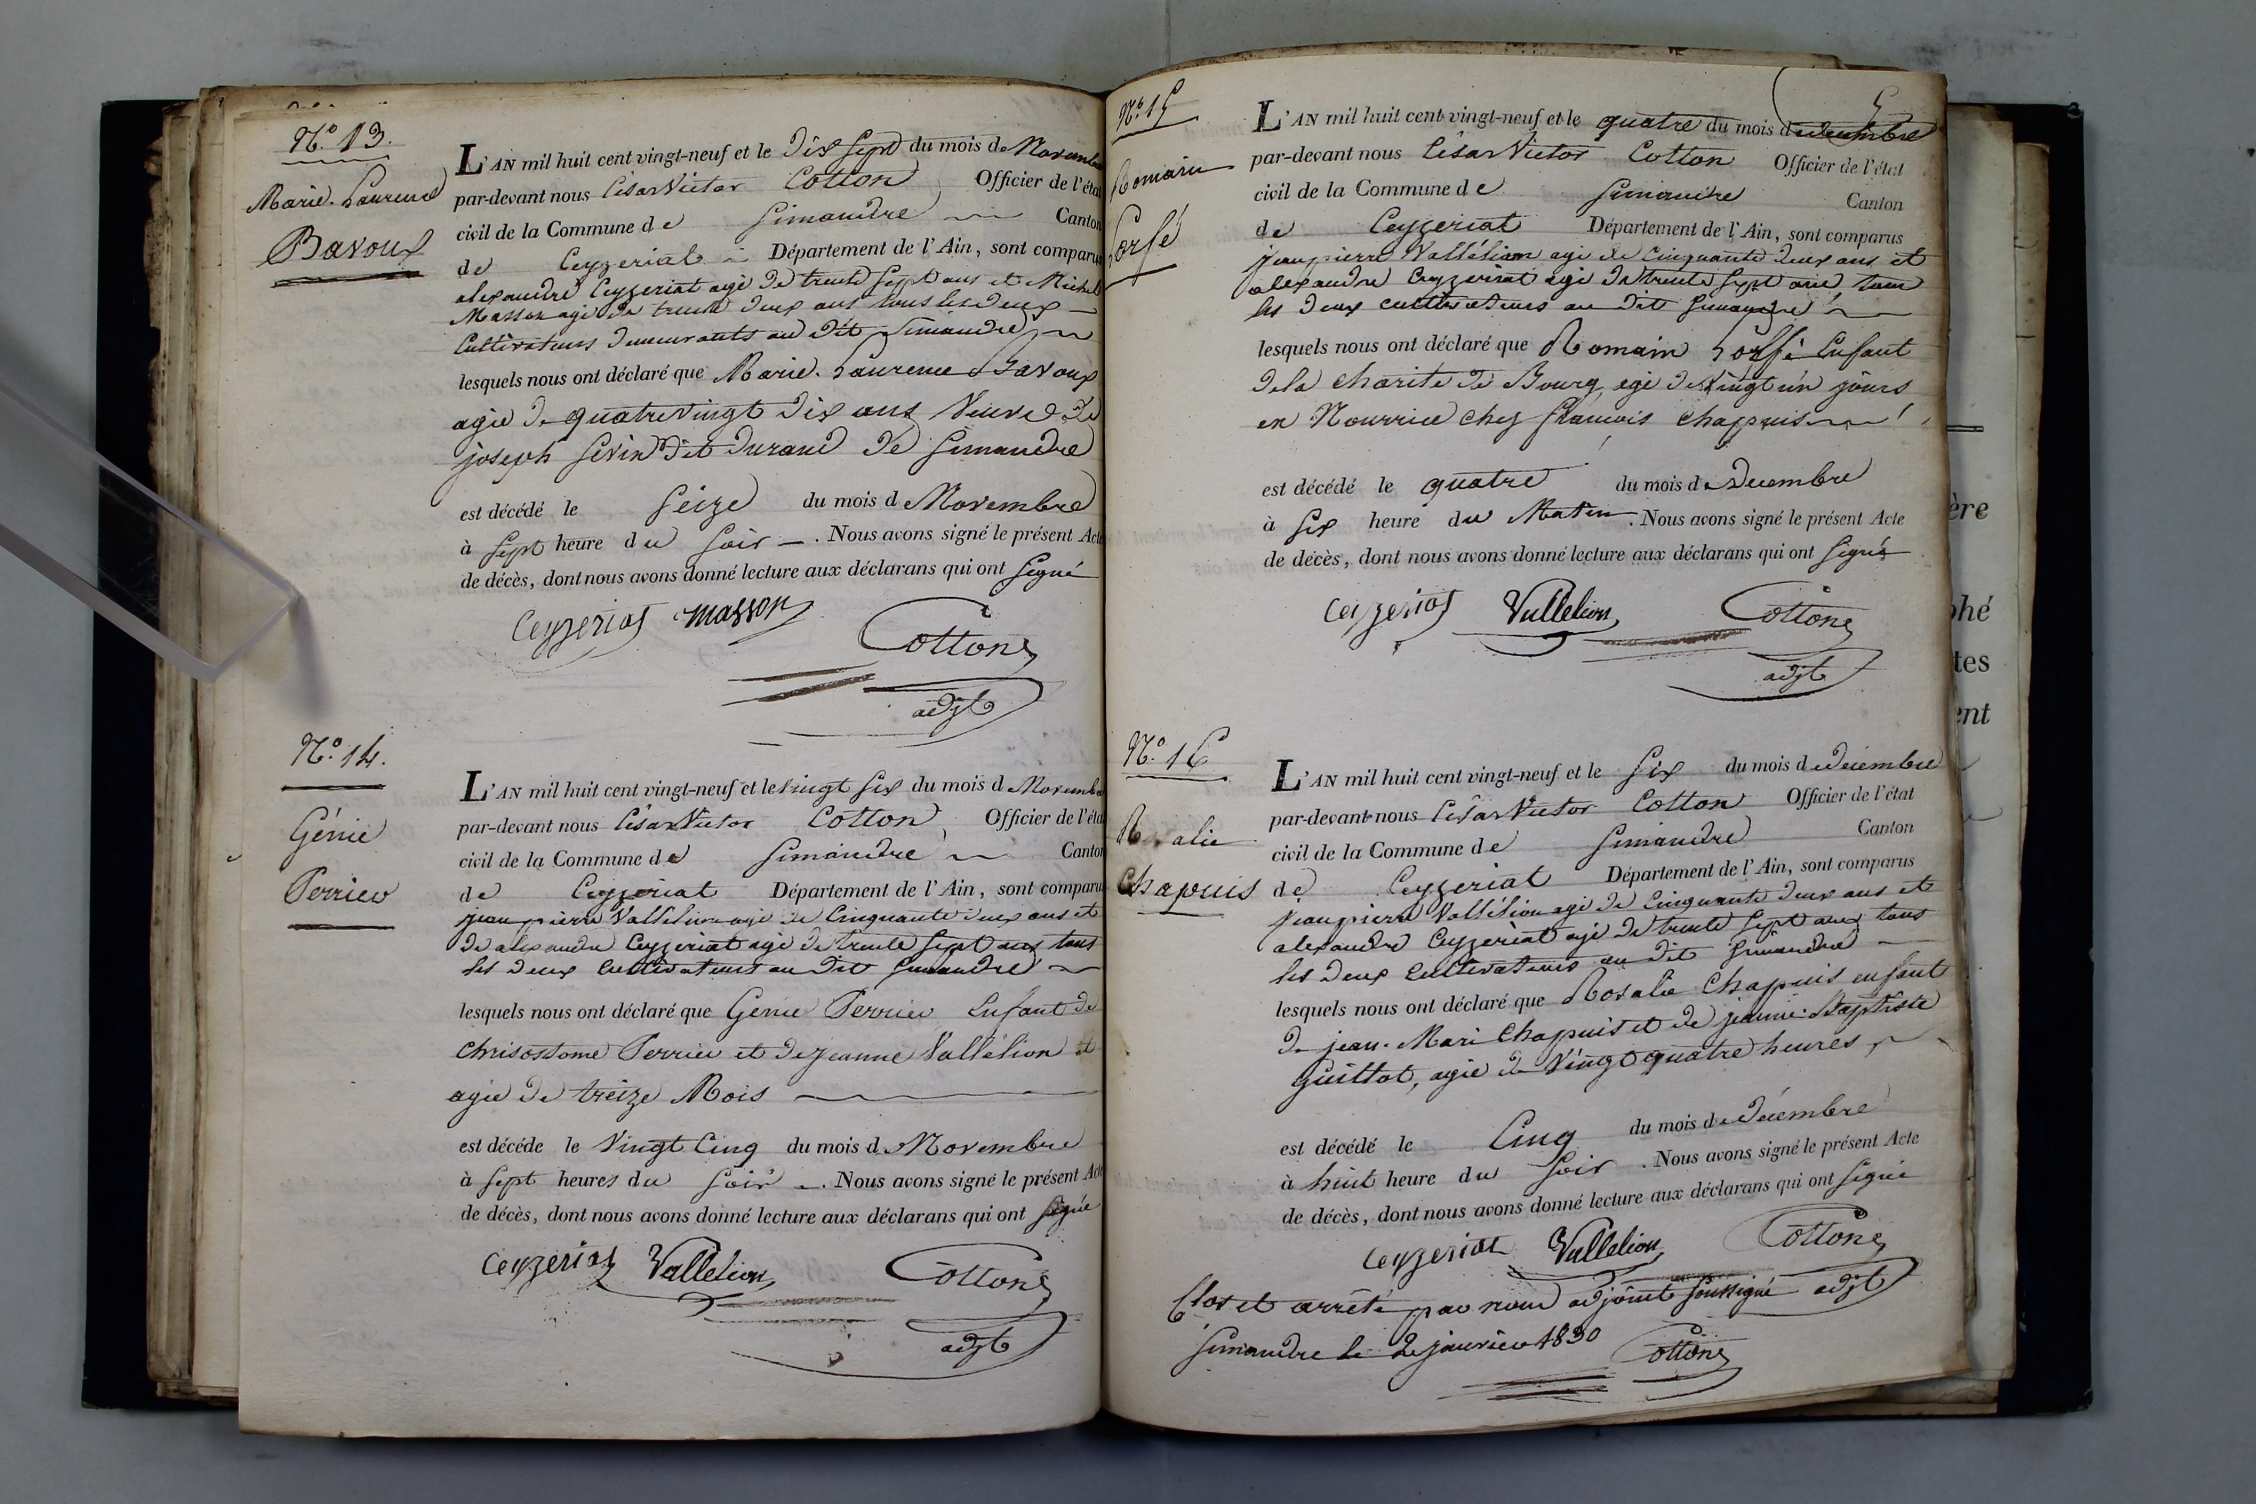 N.º 13.
Marie-Laurence
Bavoux
L'AN mil huit cent vingt-neuf et le dix sept du mois de Novembre
par-devant nous César Victor Cotton Officier de l'état
civil de la Commune de Simandre Canton
de Ceyzeriat Département de l'Ain, sont comparus
alexandre Ceyzeriat agé de trente sept ans et Michel
Masson agé de trente deux ans tous les deux
Cultivateurs demeurants au dit Simandre
lesquels nous ont déclaré que Marie-Laurence Bavoux
agée de quatrevingt dix ans Veuve de
joseph Sevin dit durand de Simandre
est décédé le Seize du mois de Novembre
à Sept heure du Soir. Nous avons signé le présent Acte
de décès, dont nous avons donné lecture aux déclarans qui ont Signé
Ceyzeriat masson Cotton
adjt
N.º 14.
Génie
Perrier
L'AN mil huit cent vingt-neuf et le vingt six du mois de Novembre
par-devant nous César Victor Cotton, Officier de l'état
civil de la Commune de Simandre Canton
de Ceyzeriat Département de l'Ain, sont comparus
jean pierre Vallélion agé de Cinquante deux ans et
de alexandre Ceyzeriat agé de trente sept ans tous
les deux cultivateurs au dit Simandre
lesquels nous ont déclaré que Génie Perrier Enfant de
chrisostome Perrier et de jeanne Vallélion et
agée de treize Mois
est décédé le Vingt Cinq du mois de Novembre
à Sept heures du Soir. Nous avons signé le présent Acte
de décès, dont nous avons donné lecture aux déclarans qui ont Signé
Ceyzeriat Vallelion Cotton
adjt
5
N.º 15
Romain
L'AN mil huit cent vingt-neuf et le quatre du mois de decembre
par-devant nous César Victor Cotton Officier de l'état
civil de la Commune de Simandre Canton
de Ceyzeriat Département de l'Ain, sont comparus
jean pierre Vallélion agé de Cinquante deux ans et
alexandre Ceyzeriat agé de trente sept ans tous
les deux cultivateurs au dit Simandre
lesquels nous ont déclaré que Romain Enfant
de la charité de Bourg, agé de Vingt un jours
en Nourrice chez francois Chappuis
est décédé le quatre du mois de Decembre
à Six heure du Matin. Nous avons signé le présent Acte
de décès, dont nous avons donné lecture aux déclarans qui ont Signés
Ceyzeriat Vallelion Cotton
adjt
N.º 16
Rosalie
Chapuis
L'AN mil huit cent vingt-neuf et le Six du mois de décembre
par-devant nous César Victor Cotton Officier de l'état
civil de la Commune de Simandre Canton
de Ceyzeriat Département de l'Ain, sont comparus
jean pierre Vallélion agé de Cinquante deux ans et
alexandre Ceyzeriat agé de trente sept ans tous
les deux cultivateurs au dit Simandre
lesquels nous ont déclaré que Rosalie Chapuis enfant
de jean-Mari Chapuis et de jeanne-Baptiste
guillot, agée de Vingt quatre heures
est décédé le Cinq du mois de décembre
à huit heure du Soir. Nous avons signé le présent Acte
de décès, dont nous avons donné lecture aux déclarans qui ont Signé
Ceyzeriat Vallelion Cotton
adjt
Clos et arrêté par nous adjoint soussigné
Simandre le 2 janvier 1830 Cotton
ère
phé
tes
ent